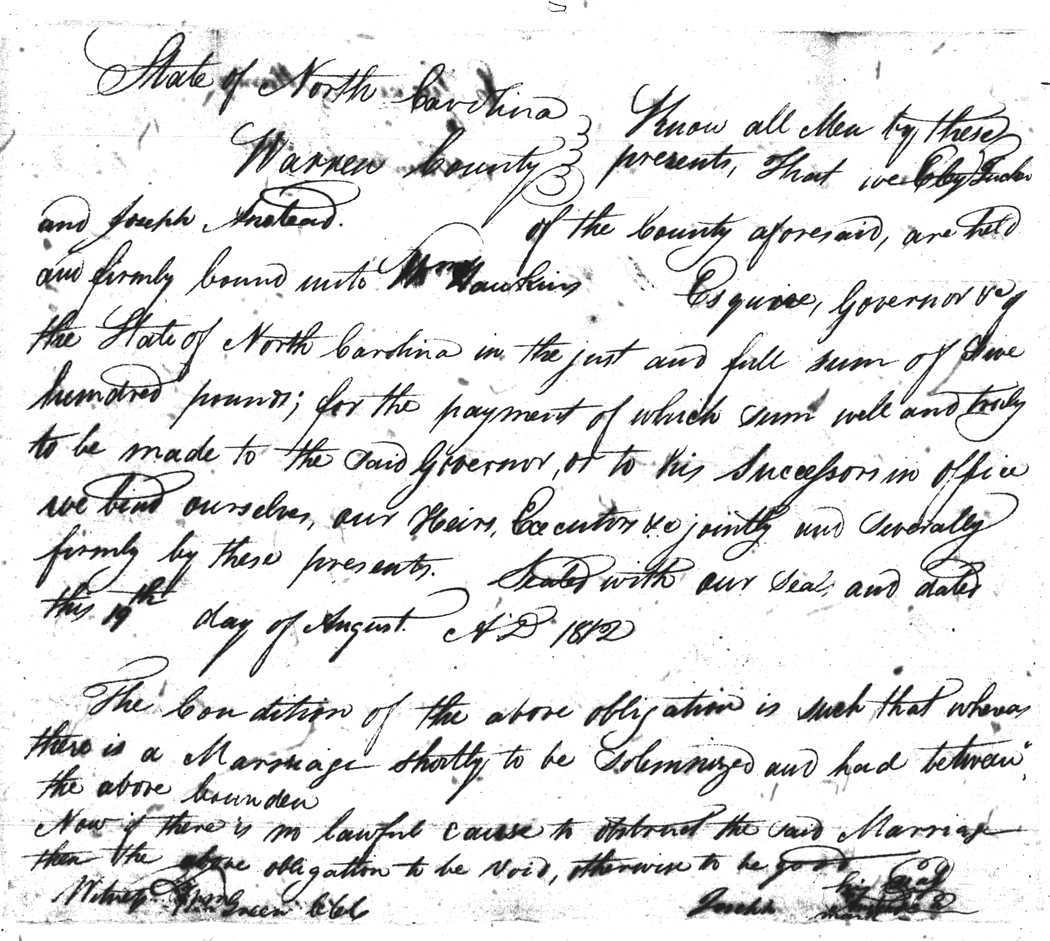 State of North Carolina
Warren County
Know all Men by these
presents, That we Tucker
and Joseph of the County aforesaid, are held
and firmly bound unto Wm Hawkins Esquire, Governor &c of
the State of North Carolina in the just and full sum of five
hundred pounds; for the payment of which sum well and truly
to be made to the said Governor, or to his Successors in office
we bind ourselves, our Heirs, Executors &c jointly and severally
firmly by these presents. Sealed with our Seal, and dated
this 19th day of August. A D 1812
The Condition of the above obligation is such that whereas
there is a Marriage shortly to be Solemnized and had between
the above bounden
Now if there is no lawful cause to obstruct the said Marriage
then the above obligation to be void, otherwise to be good
Witness Green his Seal
Joseph mark